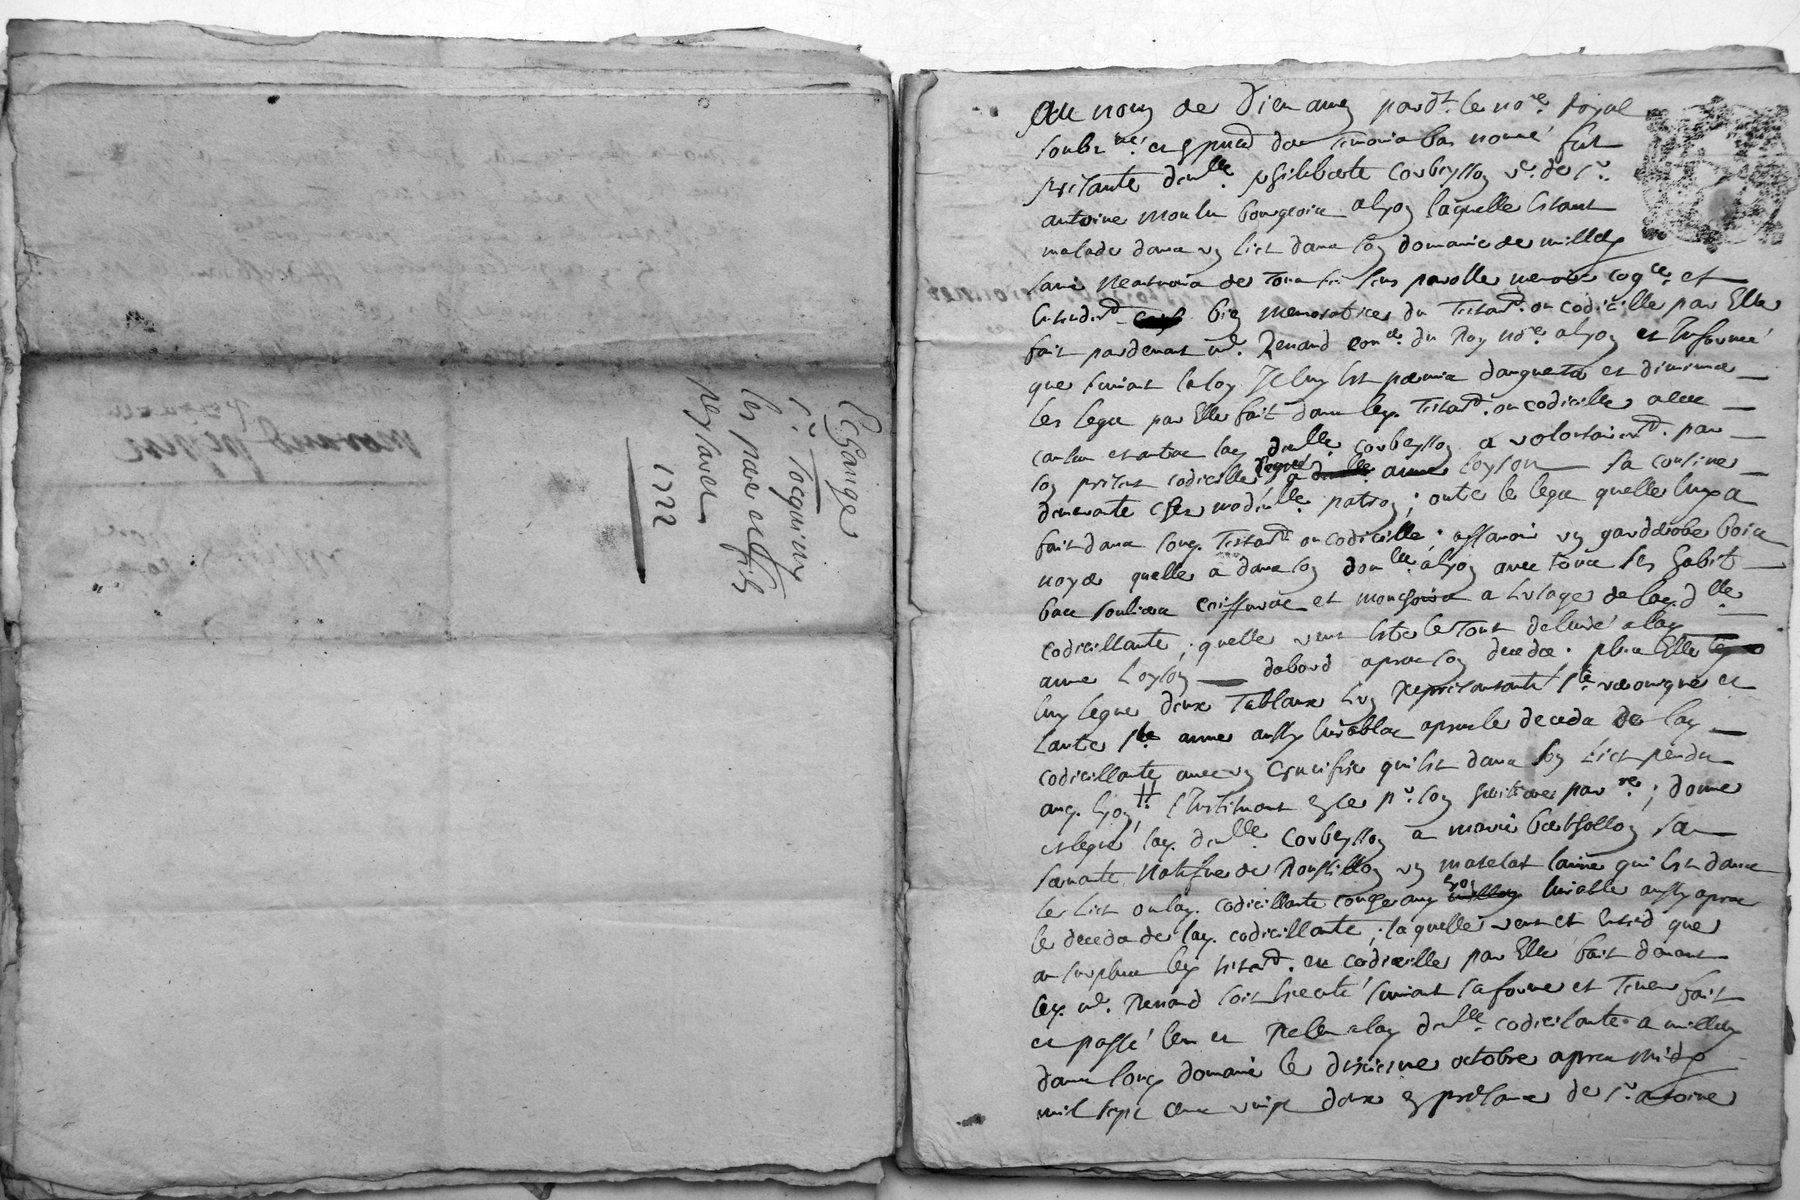 Echange
Sr Jocquin
les pare et fils
peylaret
1722
Au nom de Dieu amen pardt le nore Royal
soubzné et en pnce des temoins bas nomé fut
presante delle philiberte Corbeysson ve de Sr
antoine moulin bourgeois a lyon laquelle Estant
malade dans un lict dans son domaine de millery
saine neantmoins de tous ses sens parolle memoire et
Entendt bien memoratice du Testat ou codicille par Elle
fait pardevant Me Renaud du Roy nore a lyon et Informé
que suivant la loy Il luy Est permis d'augmenter et diminuer
les legs par Elle fait dans led. Testat ou codicille a cette
cause lad. delle Corbeysson a volontairemt par
son present codicille legué a anne Loyson sa cousine
demeurante chez madelle patron ; outre le legs quelle luy a
fait dans sond. Testat ou codicille ; assavoir un garderobe bois
noyer quelle a dans son domlle a lyon avec tous ses habit
bas souliers coiffures et mouchoirs a Lusage de lad. delle
codicillante ; quelle veut Estre le Tout delivré a lad.
anne Loyson dabord apres son deceds . plus Elle
luy legue deux Tableaux Lun Representant Ste veronique et
Lautre Ste anne aussy livrables apres le deceds de lad.
codicillante avec un Crucifix qui Est dans son Lict pendu
aud. lyon ; donne
et legue lad. delle Corbeysson a marie berthollon sa
servante native de Roussillon un matelat laine qui Est dans
le lict ou lad. codicillante couche aud. lyon livrable aussy apres
le deceds de lad. codicillante ; laquelle veut et Entend que
au surplus led. testat ou codicille par Elle fait devant
led. Me Renaud soit Executé suivant sa forme et Teneur fait
et passé leu et Releu a lad. delle codicilante a millery
dans sond. domaine le dixieme octobre apres midy
mil sept cens vingt deux en presence de Sr antoine